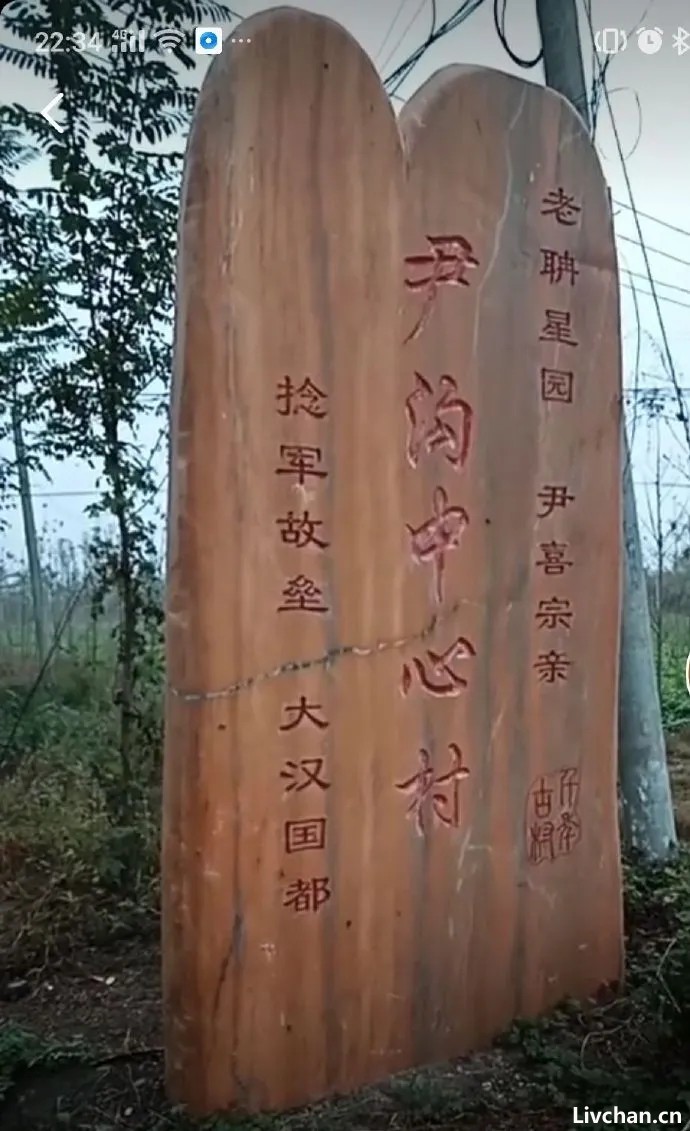 22:34 4G
老聃星园 尹喜宗亲
尹沟中心村
捻军故垒 大汉国都
千年
古村
Livchan.cn